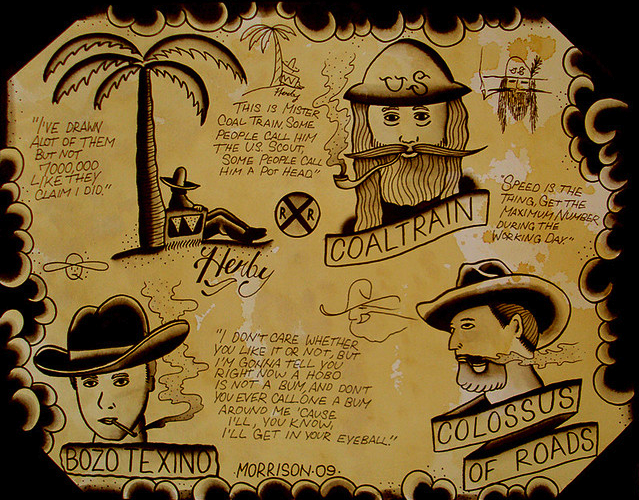 "I'VE DRAWN
ALOT OF THEM
BUT NOT
7000,000
LIKE THEY
CLAIM I DID."
Herby
THIS IS MISTER
COAL TRAIN, SOME
PEOPLE CALL HIM
THE U.S. SCOUT,
SOME PEOPLE CALL
HIM A POT HEAD."
US
US
RXR
Herby
COALTRAIN
"SPEED IS THE
THING, GET THE
MAXIMUM NUMBER
DURING THE
WORKING DAY."
"I DON'T CARE WHETHER
YOU LIKE IT OR NOT, BUT
I'M GONNA TELL YOU
RIGHT NOW A HOBO
IS NOT A BUM, AND DONT
YOU EVER CALL ONE A BUM
AROUND ME 'CAUSE
I'LL, YOU KNOW,
I'LL GET IN YOUR EYEBALL."
BOZO TEXINO
COLOSSUS
OF ROADS
MORRISON·09·